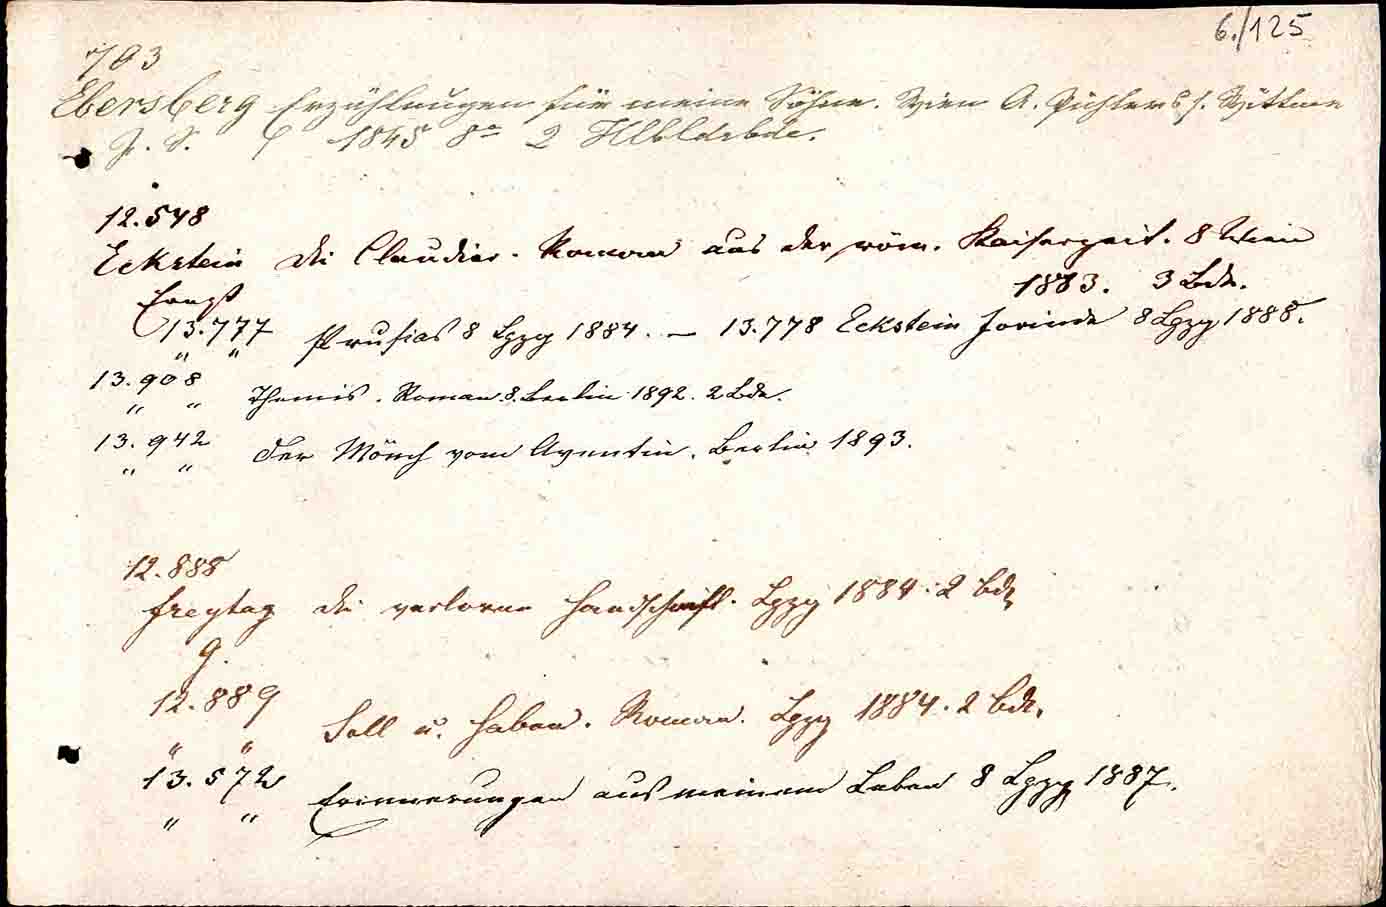 6./125
703
Ebersberg Erzählungen für meine Söhne. Wien A. Pichlers s. Wittwe
J. S. 1845 8° 2 Hlbldrbde.
12.548
Eckstein Die Claudier. Roman aus der röm. Kaiserzeit. 8 Wien
Ernst 1883. 3 Bde.
13.777 Prusias 8 Lpzg 1884. — 13.778 Eckstein Jorinde 8 Lpzg 1888.
" "
13.908 Themis. Roman. 8. Berlin 1892. 2 Bde.
" "
13.942 Der Mönch vom Aventin. Berlin 1893.
" "
12.888
Freytag Die verlorne Handschrift. Lpzg 1884. 2 Bde
G.
12.889 Soll u. Haben. Roman. Lpzg 1884. 2 Bde.
" "
13.572 Erinnerungen aus meinem Leben 8 Lpzg 1887.
" "